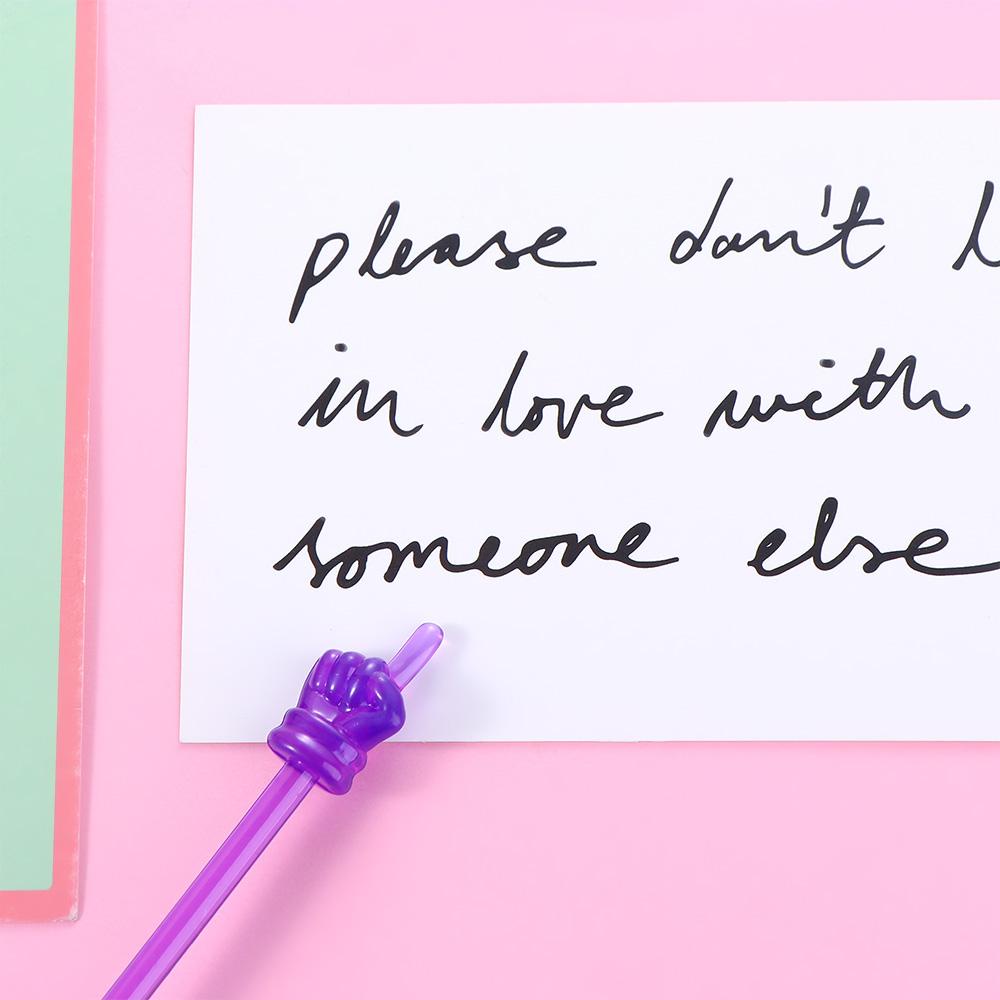 please don't
in love with
someone else